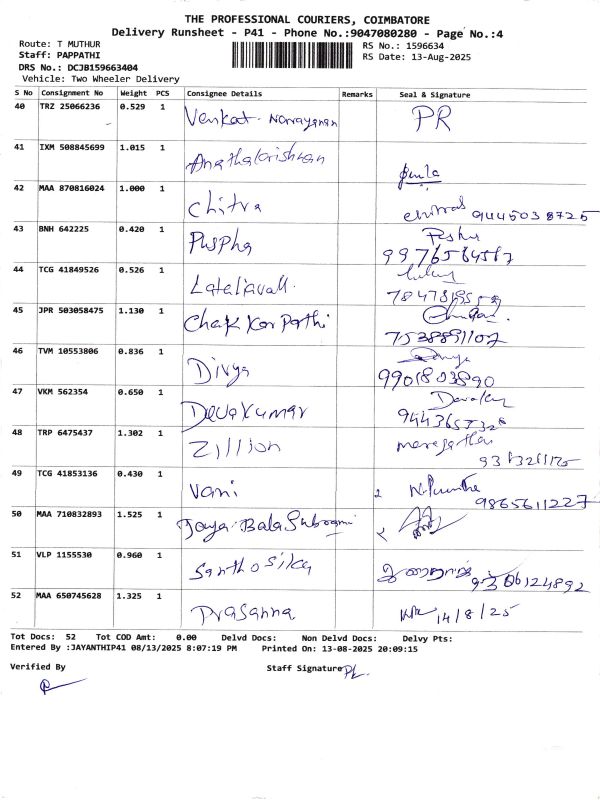 THE PROFESSIONAL COURIERS, COIMBATORE
Delivery Runsheet - P41 - Phone No.:9047080280 - Page No.:4
Route: T MUTHUR
RS No.: 1596634
Staff: PAPPATHI
RS Date: 13-Aug-2025
DRS No.: DCJB159663404
Vehicle: Two Wheeler Delivery
S No Consignment No Weight PCS Consignee Details Remarks Seal & Signature
40 TRZ 25066236 0.529 1 Venkat Narayanan PR
41 IXM 508845699 1.015 1 Ananthakrishnan
42 MAA 870816024 1.000 1 Chitra 9445038725
43 BNH 642225 0.420 1 Puspha
9976564567
44 TCG 41849526 0.526 1
45 JPR 503058475 1.130 1 Chakkarpathi
7538891107
46 TVM 10553806 0.836 1 Divya
9901803890
47 VKM 562354 0.650 1 Devakumar
48 TRP 6475437 1.302 1 Zillion
49 TCG 41853136 0.430 1 Vani
9865611227
50 MAA 710832893 1.525 1 Jaya Bala Subramani
51 VLP 1155530 0.960 1 Santho Silks
52 MAA 650745628 1.325 1 Prasanna 14/8/25
Tot Docs: 52 Tot COD Amt: 0.00 Delvd Docs: Non Delvd Docs: Delvy Pts:
Entered By :JAYANTHIP41 08/13/2025 8:07:19 PM Printed On: 13-08-2025 20:09:15
Verified By Staff Signature